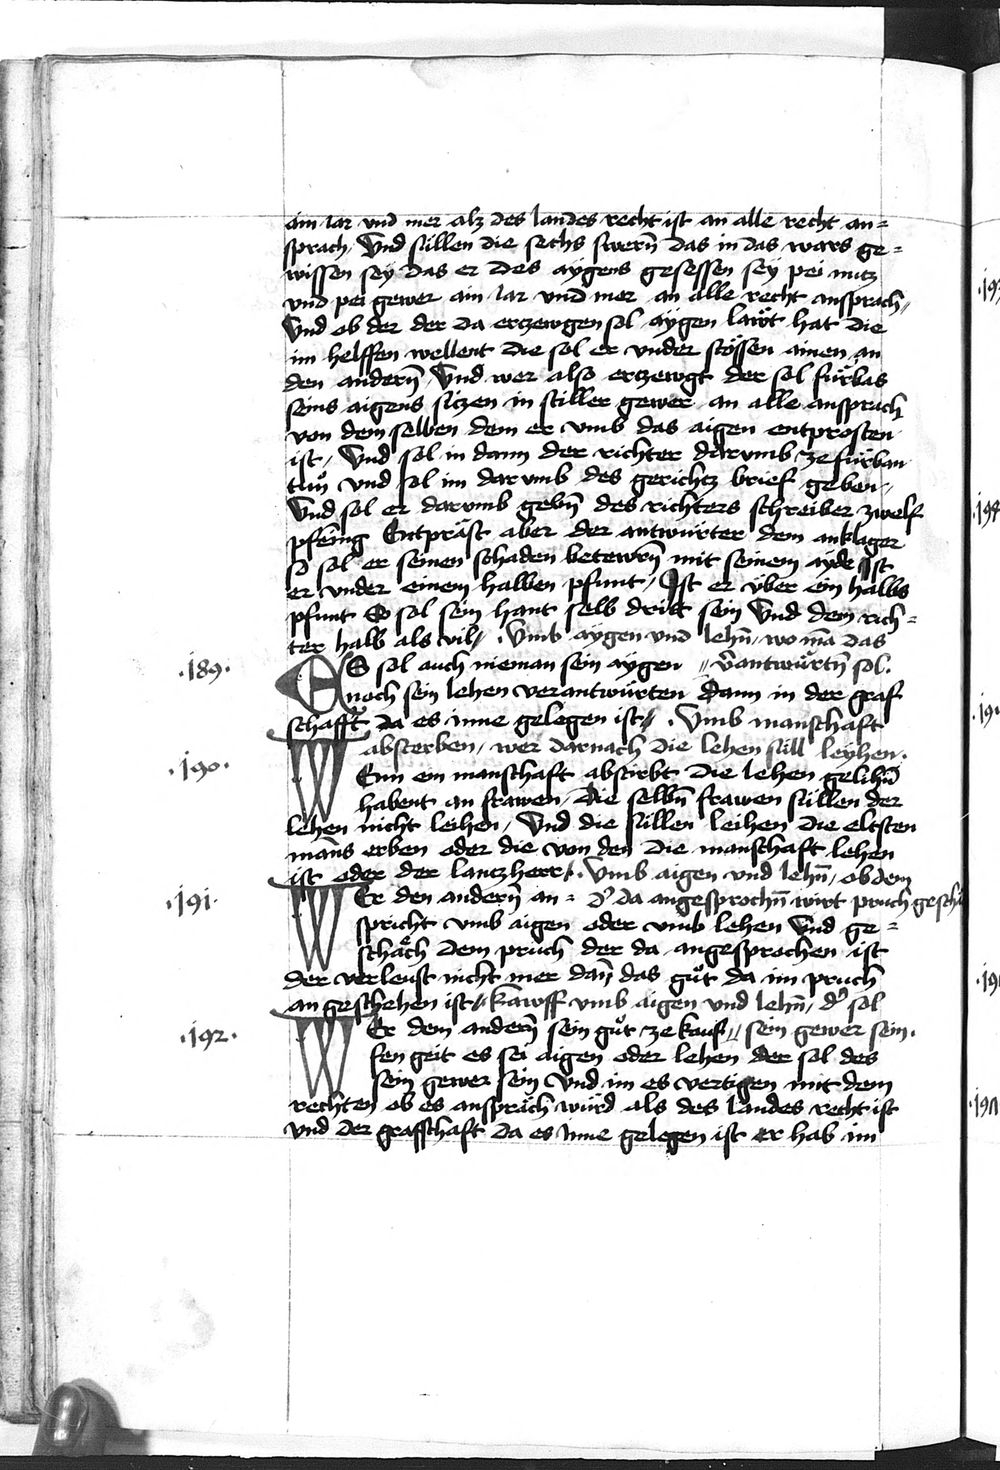 ain iar vnd mer alz des landes recht ist an alle recht an=
sprach Vnd süllen die sechs swern̄ das in das wars ge=
wissen sey das er des aygens gesessen sey pei nutz
vnd pei gewer ain iar vnd mer an alle recht ansprach
Vnd ob der der da erczewgen sol aygen lawt hat die
im helffen wellent die sol er vnder stössen ainen an
den andern̄ Vnd wer also erczewgt der sol fürbas
seins aigens siczen in stiller gewer an alle ansprach
von dem selben dem er vmb das aigen entprosten
ist Vnd sol in dann der richter darumb ze fürban
tün vnd sol im darumb des gerichtz brief geben
Vnd sol er darumb gebn̄ des richters schreiber zwelf
pfenng Entpräst aber der antwürter dem anklager
so sol er seinen schaden betewrn̄ mit seinem ayde Ist
er vnder einem halben pfunt Ist er vber ein halbs
pfunt So sol sein hant selb dritt sein Vnd dem rich=
ter halb als vil Vmb aygen vnd lehn̄ wo mā das
·189· ES sol auch nieman sein aygen v̄antwürtn̄ sol.
noch sein lehen verantwürten dann in der graf
schafft da es inne gelegen ist Vmb manschaft
absterben wer darnach die lehen süll leyhen.
·190· WEnn ein manschaft abstirbt die lehen gelihn̄
habent an frawen Die selbn̄ frawen süllen der
lehen nicht leihen Vnd die süllen leihen die eltsten
mans erben oder die von den die manschaft lehen
ist oder der lanczherr Vmb aigen vnd lehn̄ ob dem
·191· WEr den andern̄ an= d' da angesprochn̄ wirt pruch
spricht vmb aigen oder vmb lehen Vnd ge=
schäch dem pruch der da angesprochen ist
der verleust nicht mer dan̄ das gut da im pruch
an geschehen ist kawff vmb aigen vnd lehn̄ d' sol
·192· WEr dem andern̄ sein gut ze kauf sein gewer sein.
fen geit es sei aigen oder lehen der sol des
sein gewer sein Vnd im es vertigen mit dem
rechten ob es anspräch würd als des landes recht ist
vnd der grafschaft da es inne gelegen ist er hab im